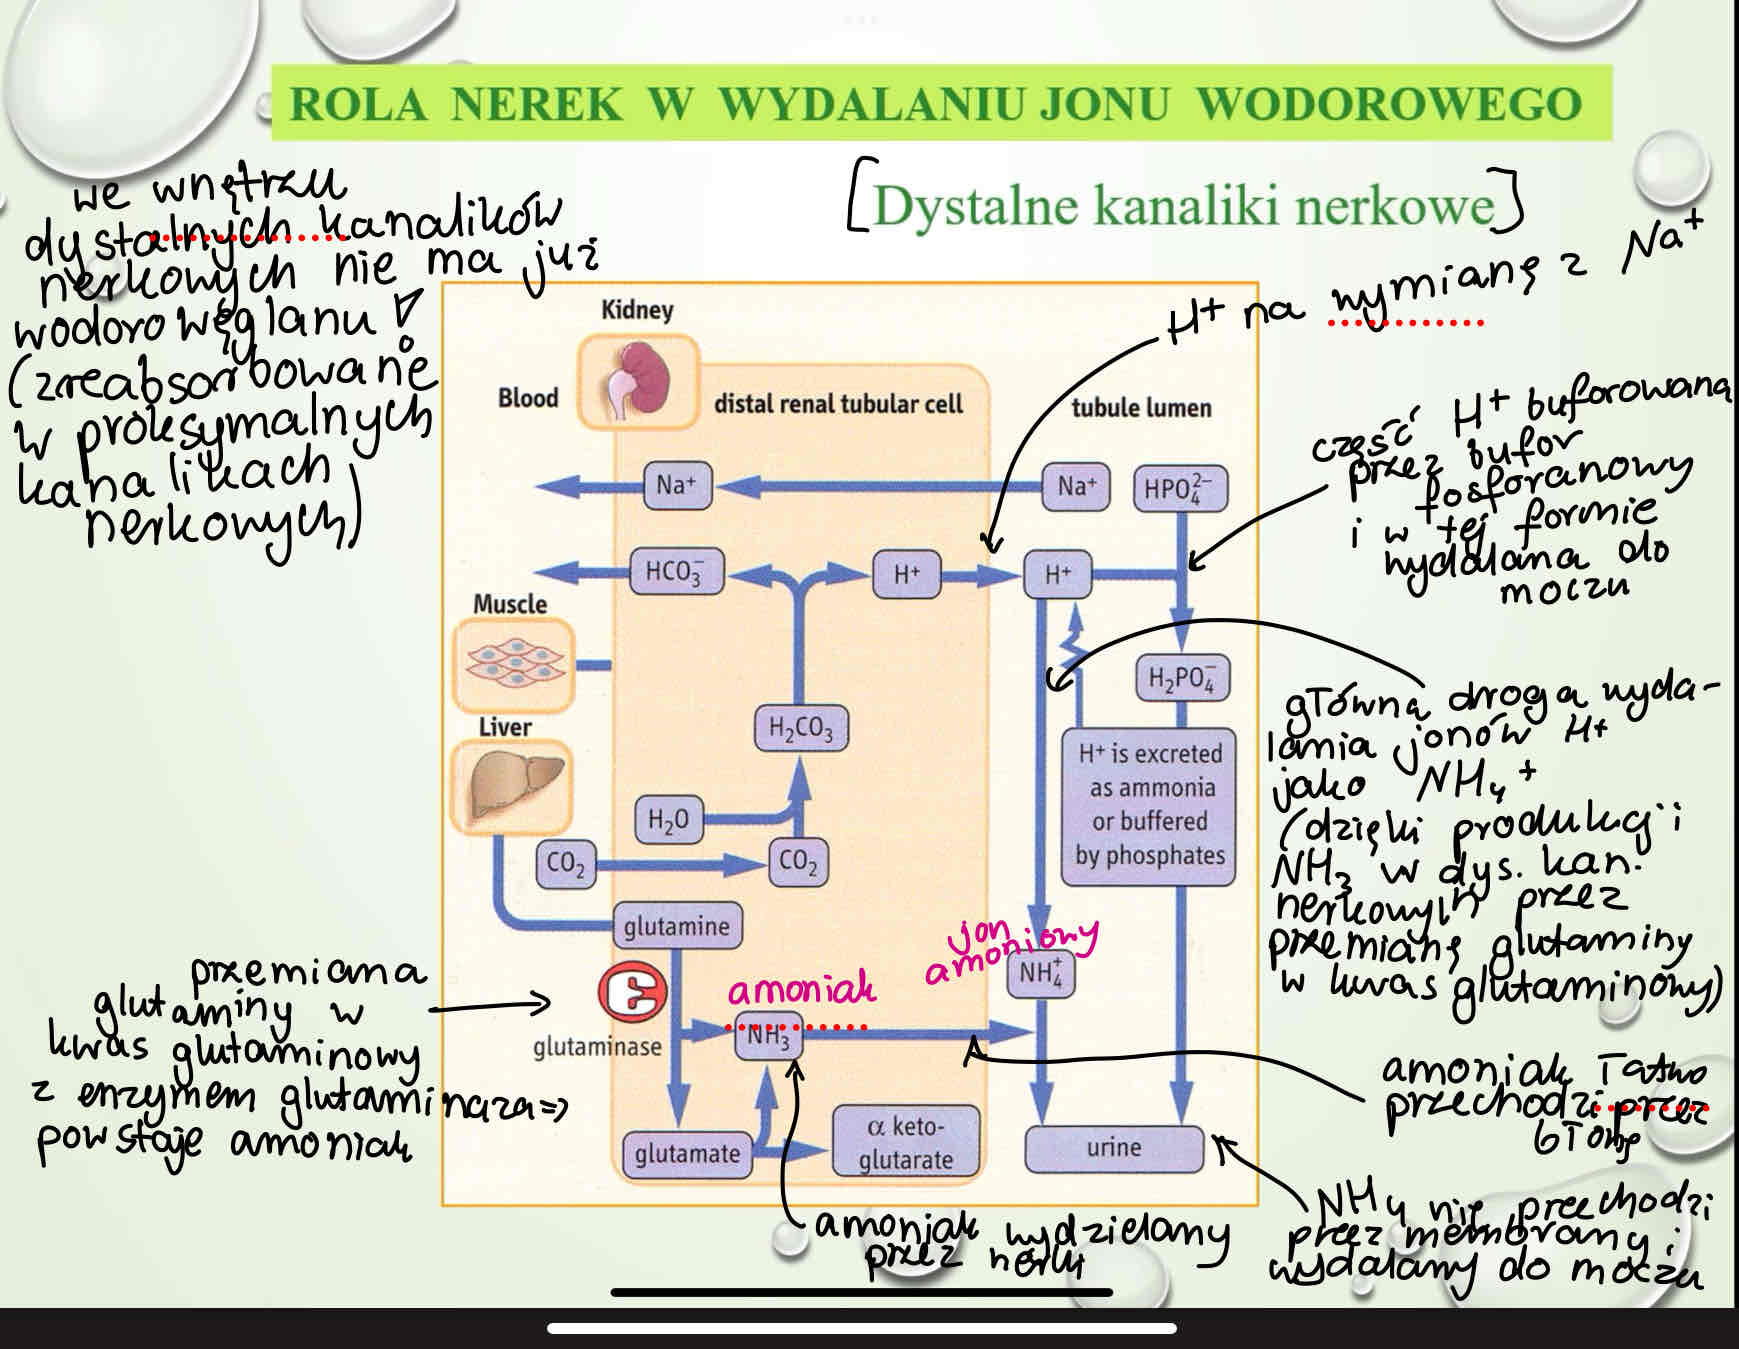 ROLA NEREK W WYDALANIU JONU WODOROWEGO
[Dystalne kanaliki nerkowe]
we wnętrzu
dystalnych kanalików
nerkowych nie ma już
wodorowęglanu
(zreabsorbowane
w proksymalnych
kanalikach
nerkowych)
H+ na wymianę z Na+
część H+ buforowana
przez bufor
fosforanowy
i w tej formie
wydalana do
moczu
główna droga wyda-
lania jonów H+
jako NH4+
(dzięki produkcji
NH3 w dys. kan.
nerkowych przez
przemianę glutaminy
w kwas glutaminowy)
amoniak łatwo
przechodzi przez
błonę
NH4 nie przechodzi
przez membrany i
wydalany do moczu
przemiana
glutaminy w
kwas glutaminowy
z enzymem glutaminaza=>
powstaje amoniak
amoniak wydzielany
przez nerki
Kidney
Blood
distal renal tubular cell
tubule lumen
Na+
Na+
HPO₄²⁻
HCO₃⁻
H+
H+
Muscle
H₂PO₄⁻
Liver
H₂CO₃
H+ is excreted
as ammonia
or buffered
by phosphates
H₂O
CO₂
CO₂
glutamine
jon
amoniowy
NH₄⁺
amoniak
NH₃
E
glutaminase
glutamate
α keto-
glutarate
urine